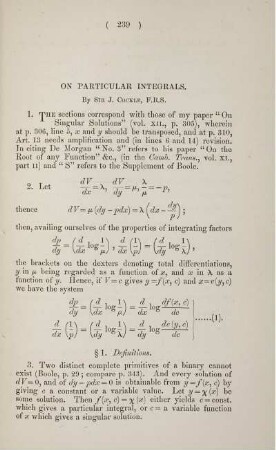 ( 239 )
ON PARTICULAR INTEGRALS.
By SIR J. COCKLE, F.R.S.
1. THE sections correspond with those of my paper "On
Singular Solutions" (vol. XII., p. 305), wherein
at p. 306, line 5, x and y should be transposed, and at p. 310,
Art. 13 needs amplification and (in lines 6 and 14) revision.
In citing De Morgan "No. 5" refers to his paper "On the
Root of any Function" &c., (in the Camb. Trans., vol. XI.,
part II] and "S" refers to the Supplement of Boole.
2. Let dV/dx = λ, dV/dy = μ, λ/μ = −p,
thence dV = μ (dy − pdx) = λ (dx − dy/p);
then, availing ourselves of the properties of integrating factors
dp/dy = (d/dx log 1/μ), d/dx (1/p) = (d/dy log 1/λ),
the brackets on the dexters denoting total differentiations,
y in μ being regarded as a function of x, and x in λ as a
function of y. Hence, if V = c gives y = f(x, c) and x = v(y, c)
we have the system
dp/dy = (d/dx log 1/μ) = d/dx log df(x, c)/dc
d/dx (1/p) = (d/dy log 1/λ) = d/dy log dv(y, c)/dc } ......[1].
§ 1. Definitions.
3. Two distinct complete primitives of a binary cannot
exist (Boole, p. 29; compare p. 343). And every solution
of dV = 0, and of dy − pdx = 0 is obtainable from y = f(x, c) by
giving c a constant or a variable value. Let y = χ(x) be
some solution. Then f(x, c) = χ(x) either yields c = const.
which gives a particular integral, or c = a variable function
of x which gives a singular solution.